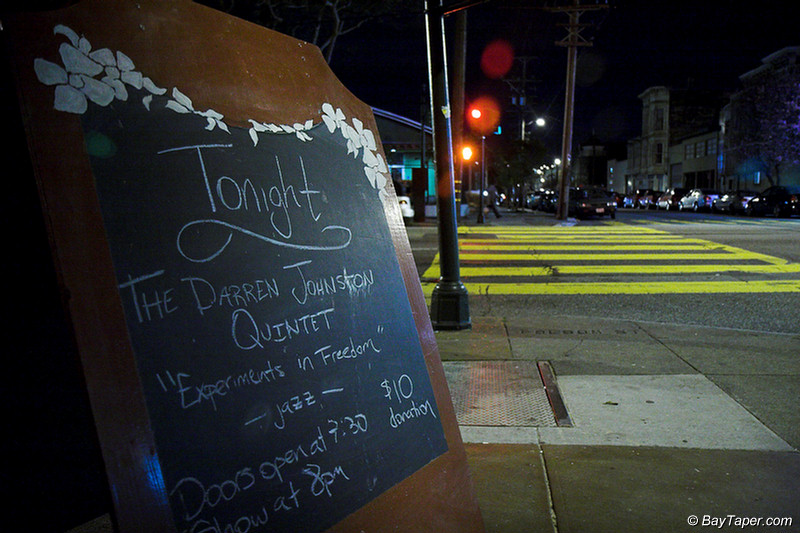 Tonight
THE DARREN JOHNSTON
QUINTET
"Experiments in Freedom"
- jazz -
$10
donation
Doors open at 7:30
Show at 8pm
© BayTaper.com